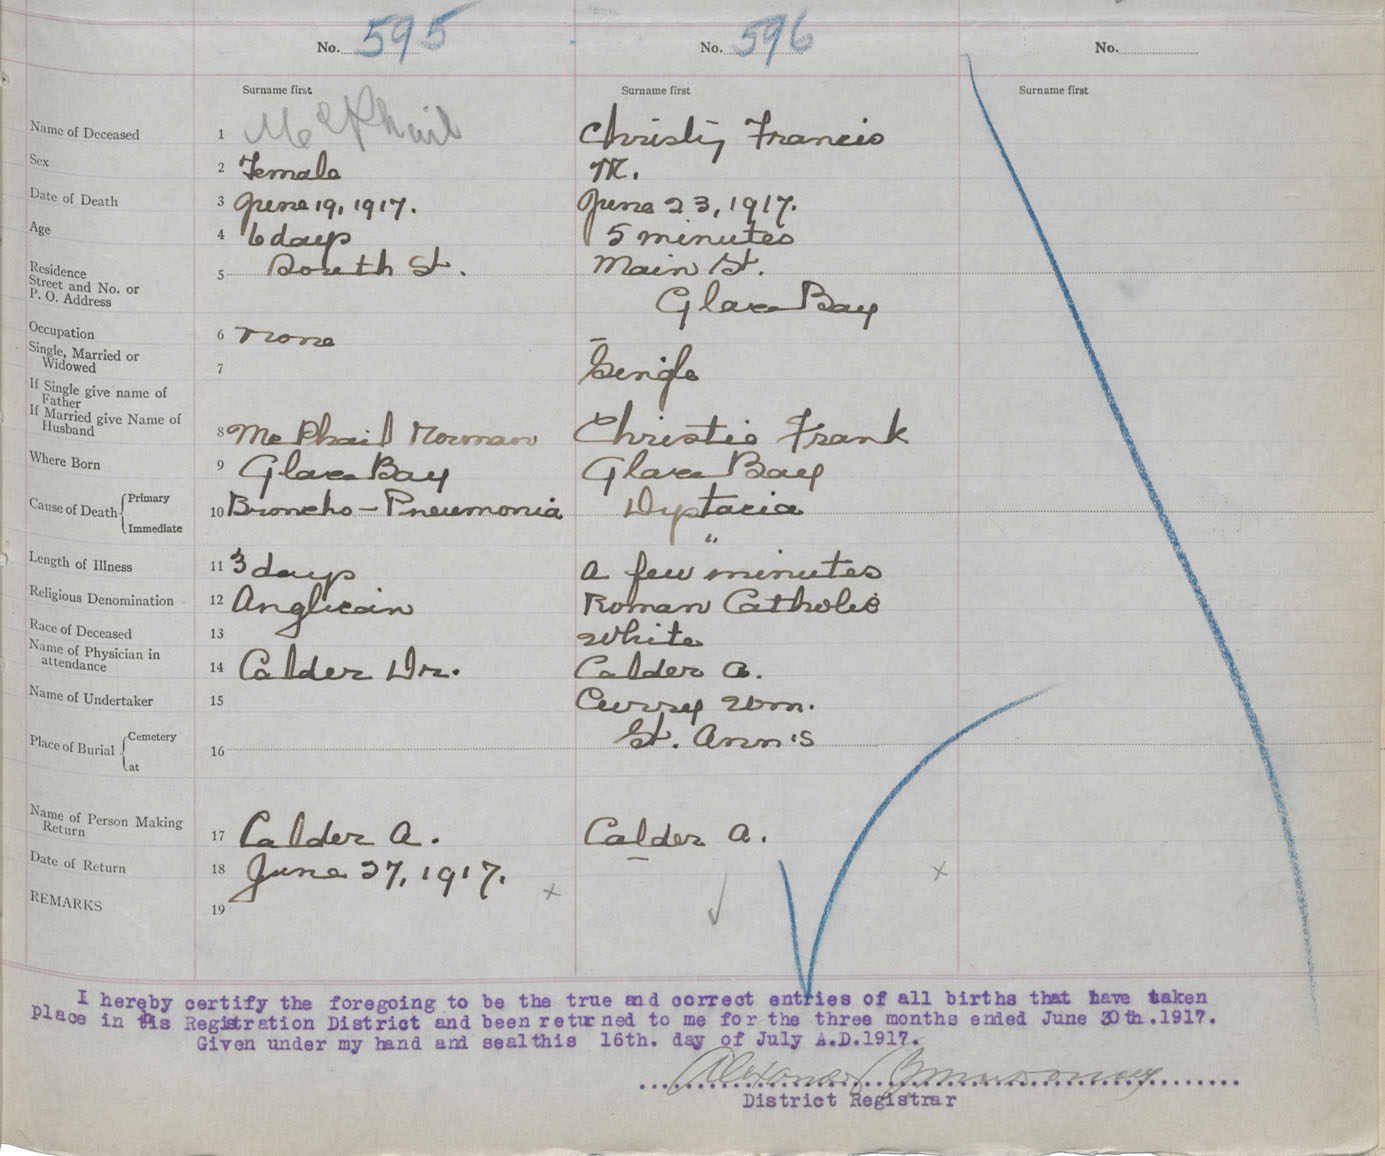 No. 595 No. 596 No.
Surname first Surname first Surname first
Name of Deceased 1 McPhail Christy Francis
Sex 2 Female M.
Date of Death 3 June 19, 1917. June 23, 1917.
Age 4 6 days 5 minutes
Residence
Street and No. or
P. O. Address 5 South St. Main St.
Glace Bay
Occupation 6 none –
Single, Married or
Widowed 7 Single
If Single give name of
Father
If Married give Name of
Husband 8 McPhail Norman Christie Frank
Where Born 9 Glace Bay Glace Bay
Cause of Death { Primary
Immediate 10 Broncho-Pneumonia Dystacia
"
Length of Illness 11 3 days a few minutes
Religious Denomination 12 Anglican Roman Catholic
Race of Deceased 13 White
Name of Physician in
attendance 14 Calder Dr. Calder A.
Name of Undertaker 15 Curry Wm.
Place of Burial { Cemetery
at 16 St. Ann's
Name of Person Making
Return 17 Calder A. Calder A.
Date of Return 18 June 27, 1917. –
REMARKS 19
I hereby certify the foregoing to be the true and correct entries of all births that have taken
place in this Registration District and been returned to me for the three months ended June 30th.1917.
Given under my hand and seal this 16th. day of July A.D.1917.
Alexander
District Registrar